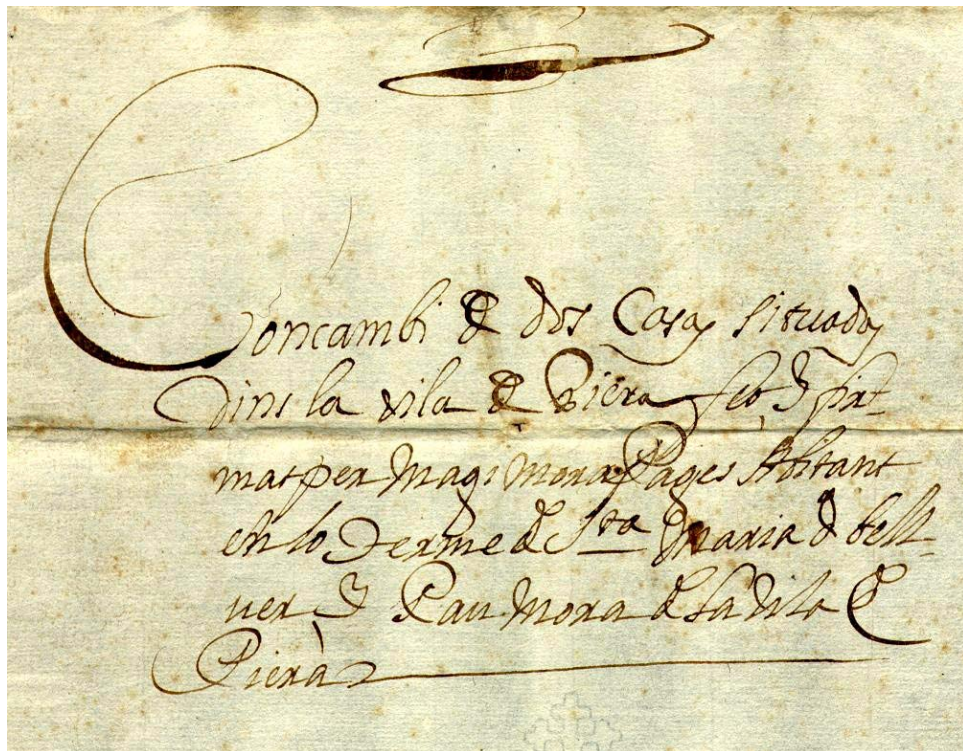 Concambi de dos Casas situadas
dins la vila de Piera feo y fir-
mat per Magi Mora Pages Abitant
en lo Terme de Sta Maria de bell-
ver y Pau Mora de la Vila de
Piera